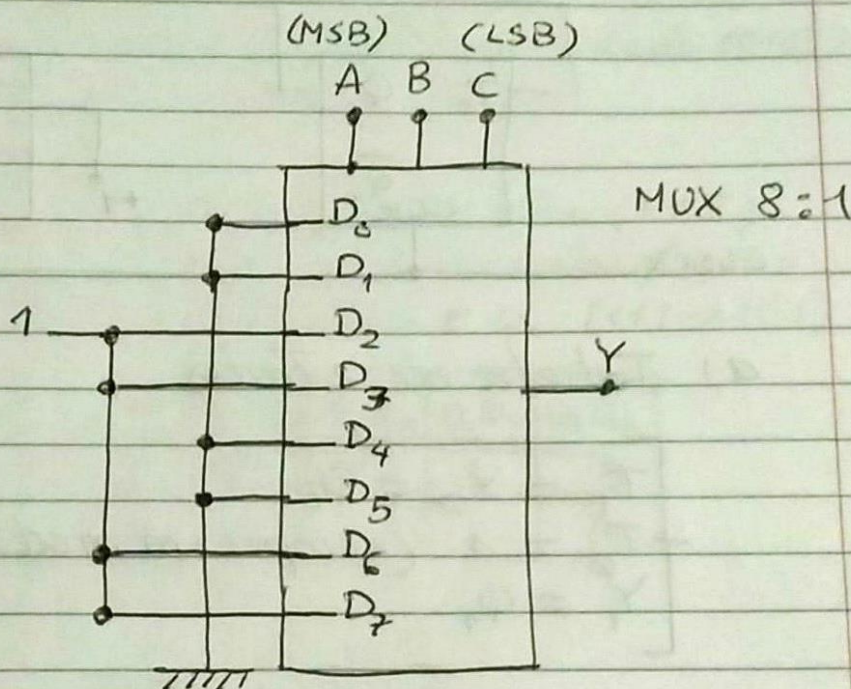 (MSB) (LSB)
A B C
MUX 8:1
D₀
D₁
1 D₂
Y
D₃
D₄
D₅
D₆
D₇